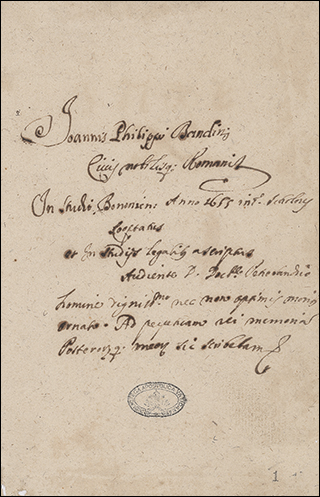 Joannis Philippi Bandini
Civis nobilisq; Romani
In Studio Bononien: Anno 1655 int. Scholares
Cooptatus
et In Studijs legalib. ascriptus
Audiente D.
homine digniss.mo nec non optimis morib.
ornato. Ad perpetuam rei memoriam
Posteror.q; meor. sic scribebam
1